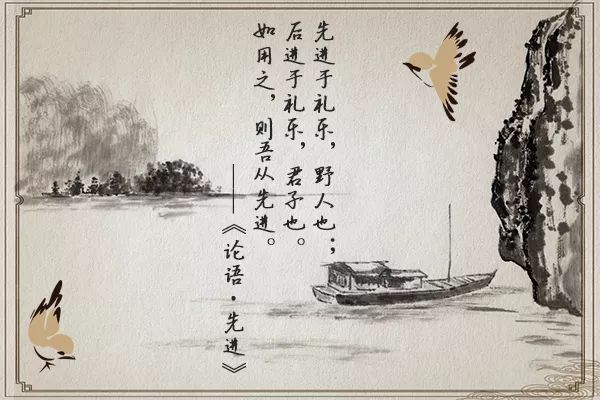 先进于礼乐，野人也；
后进于礼乐，君子也。
如用之，则吾从先进。
——《论语·先进》